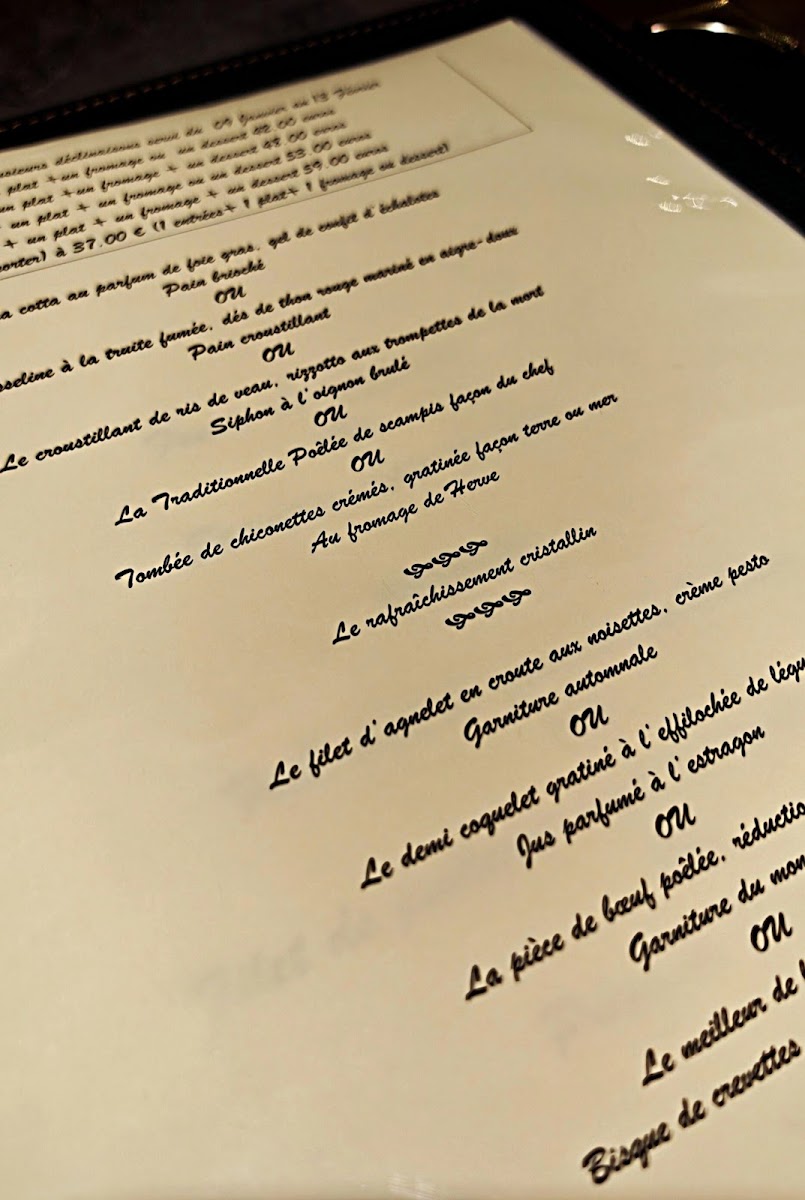 déclinaisons servi du 09 Janvier au 13 Février
plat + un fromage ou un dessert 42.00 euros
un plat + un fromage + un dessert 48.00 euros
+ un plat + un fromage ou un dessert 53.00 euros
+ un plat + un fromage + un dessert 59.00 euros
à 37.00 € (1 entrées+ 1 plat+ 1 fromage ou dessert)
cotta au parfum de foie gras, gel de confit d'échalotes
Pain brioché
OU
à la truite fumée, dés de thon rouge mariné en aigre-doux
Pain croustillant
OU
Le croustillant de ris de veau, rizzotto aux trompettes de la mort
Siphon à l'oignon brulé
OU
La Traditionnelle Poêlée de scampis façon du chef
OU
Tombée de chiconettes crémés, gratinée façon terre ou mer
Au fromage de Herve
Le rafraîchissement cristallin
Le filet d'agnelet en croute aux noisettes, crème pesto
Garniture automnale
OU
Le demi coquelet gratiné à l'effilochée de
Jus parfumé à l'estragon
OU
La pièce de bœuf poêlée,
Garniture du
OU
Le meilleur de
Bisque de crevettes